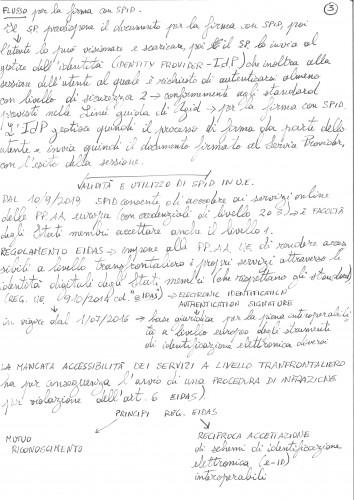 FLUSSO per la firma con SPID. 3
Il SP. predispone il documento per la firma con SPID, poi
l'utente lo può visionare e scaricare, poi il SP lo invia al
gestore dell'identità (IDENTITY PROVIDER - IdP) che inoltra alla
sessione dell'utente al quale è richiesto di autenticarsi almeno
con livello di sicurezza 2 → conformemente agli standard
previsti nelle Linee guida di Agid → per la firma con SPID.
L'IdP gestisce quindi il processo di firma da parte dello
utente e invia quindi il documento firmato al Service Provider,
con l'esito della sessione.
VALIDITÀ E UTILIZZO DI SPID IN U.E.
DAL 10/9/2019 SPID consente di accedere ai servizi online
delle PP.AA europee (con credenziali di livello 2 o 3) → è FACOLTÀ
degli Stati membri accettare anche il livello 1.
REGOLAMENTO EIDAS → impone alle PP.AA. UE di rendere acces
sibili a livello transfrontaliero i propri servizi attraverso le
identità digitali degli Stati membri (che rispettano gli standard)
(REG. UE 910/2014 cd. "eIDAS) → ELECTRONIC IDENTIFICATION
AUTHENTICATION SIGNATURE
in vigore dal 1/07/2016 → base giuridica per la piena interoperabili
tà a livello europeo degli strumenti
di identificazione elettronica diversi
LA MANCATA ACCESSIBILITÀ DEI SERVIZI A LIVELLO TRANFRONTALIERO
ha per conseguenza l'avvio di una PROCEDURA DI INFRAZIONE
per violazione dell'art. 6 EIDAS)
PRINCIPI REG. EIDAS
MUTUO
RICONOSCIMENTO
RECIPROCA ACCETTAZIONE
di schemi di identificazione
elettronica (e-ID)
interoperabili